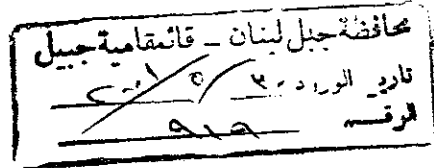 محافظة جبل لبنان - قائمقامية جبيل
تاريخ الورود ٣٠ / ٥ / ٢٠٠١
الرقم ٩١٩